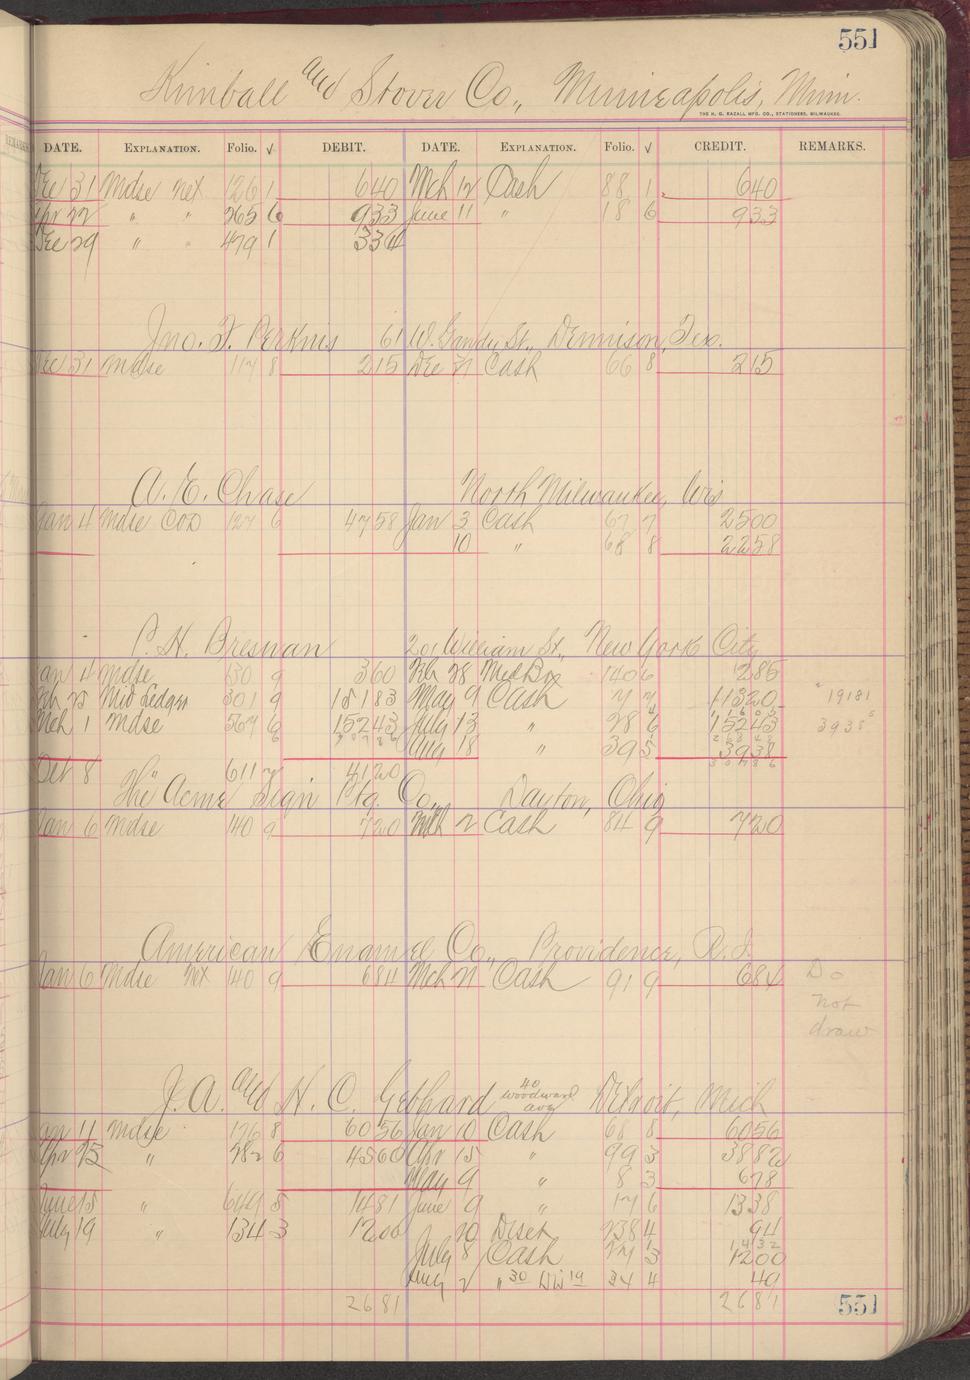 551
Kimball and Stover Co., Minneapolis, Minn.
THE H. G. RAZALL MFG. CO., STATIONERS, MILWAUKEE.
DATE. EXPLANATION. Folio. √ DEBIT. DATE. EXPLANATION. Folio. √ CREDIT. REMARKS.
Dec 31 Mdse net 126 1 640 Mch 12 Cash 88 1 640
Apr 22 " " 265 6 933 June 11 " 18 6 933
Dec 29 " " 479 1 334
Jno. F. Perkins 61 W. Gandy St., Dennison, Tex.
Dec 31 Mdse 117 8 215 Dec Cash 66 8 215
A. E. Chase North Milwaukee, Wis
Jan 4 Mdse COD 127 6 4758 Jan 3 Cash 67 7 2500
10 " 68 8 2258
P. H. Bresnan 201 William St., New York City
Jan 4 Mdse 130 9 360 Feb 28 Mdse 140 6 285
Feb 25 Mid Ledger 301 9 15183 May 9 Cash 7 7 11320 19181
Mch 1 Mdse 567 6 15243 July 13 " 28 6 15243 3938
Aug 18 " 39 5 3938
Oct 8 " 611 4120
The Acme Sign Ptg. Co., Dayton, Ohio
Jan 6 Mdse 140 9 720 Mch 2 Cash 84 9 720
American Enamel Co., Providence, R. I.
Jan 6 Mdse Net 140 9 684 Mch 21 Cash 91 9 684 Do
not
draw
J. A. and H. C. Gebhard 40 Woodward ave Detroit, Mich
Jan 11 Mdse 176 8 6056 Jan 10 Cash 68 8 6056
Apr 25 " 282 6 4560 Apr 15 " 99 3 3882
May 9 " 8 3 678
June 15 " 649 5 1481 June 9 " 17 6 1338
July 19 " 134 3 1200 20 Disct 238 4 94
1432
July 8 Cash 27 3 1200
Aug 2 " 30 19 34 4 49
2681 2681
551